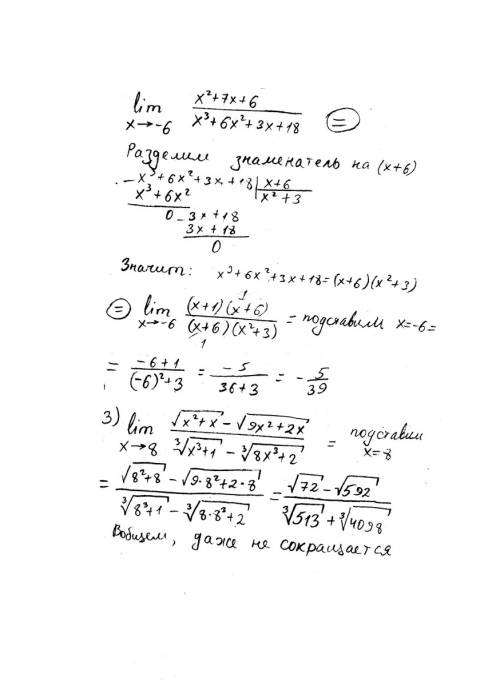 lim x→-6 (x²+7x+6)/(x³+6x²+3x+18) =
Разделим знаменатель на (x+6)
- x³+6x²+3x+18 | x+6
x³+6x² | x²+3
0 - 3x+18
3x+18
0
Значит: x³+6x²+3x+18=(x+6)(x²+3)
= lim x→-6 ((x+1)(x+6) 1)/((x+6)(x²+3) 1) = подставим x=-6=
= (-6+1)/((-6)²+3) = (-5)/(36+3) = -5/39
3) lim x→8 (√(x²+x) - √(9x²+2x))/(∛(x³+1) - ∛(8x³+2)) = подставим x=8
= (√(8²+8) - √(9·8²+2·8))/(∛(8³+1) - ∛(8·8³+2)) = (√72 - √592)/(∛513 + ∛4098)
Вобщем, даже не сокращается